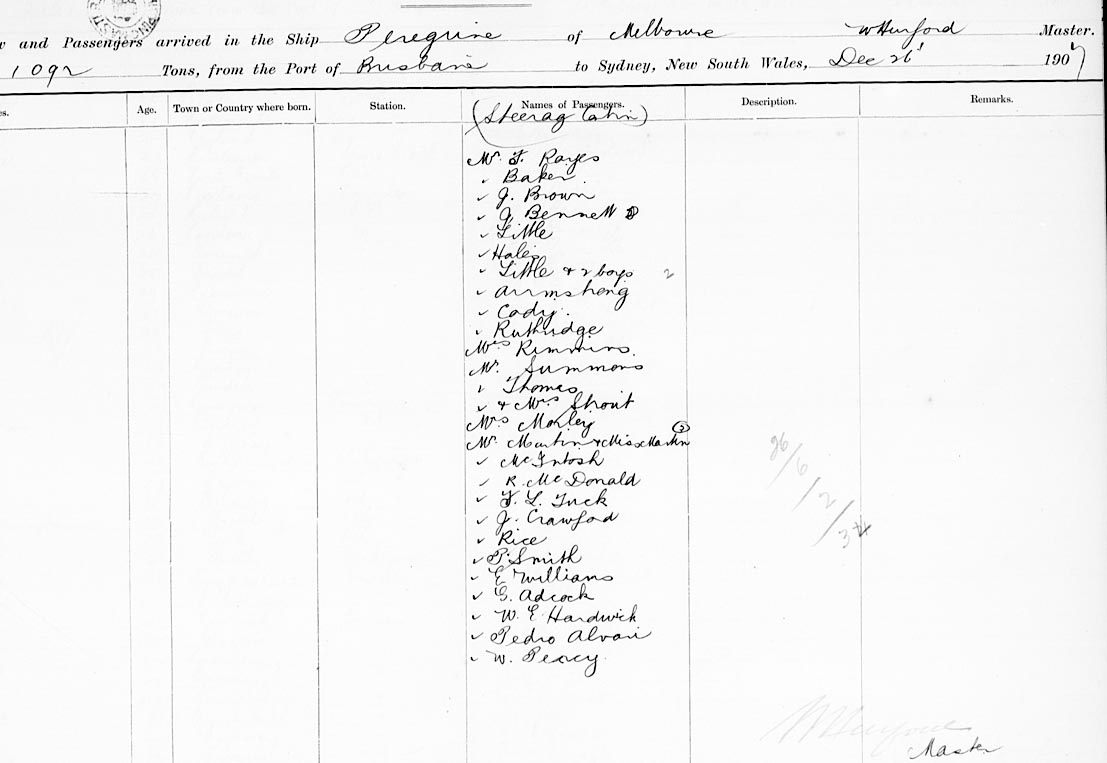 and Passengers arrived in the Ship Peregrine of Melbourne W Hurford Master.
1092 Tons, from the Port of Brisbane to Sydney, New South Wales, Dec 26 1907
Age. Town or Country where born. Station. Names of Passengers. Description. Remarks.
(Steerag Cabin)
Mr. F. Rayes
✓ Baker
✓ J. Brown
✓ J. Bennett
✓ Little
✓ Hales
✓ Little + 2 boys 2
✓ Armstrong
✓ Cady.
✓ Ruthridge
Mrs Rimmins.
Mr. Summons
✓ Thomas
✓ + Mrs Shout
Mrs Morley
Mr. Martin + Miss Martin (2)
✓ McIntosh
✓ R. McDonald
✓ F. L. Tuck
✓ J. Crawford
✓ Rice
✓ P. Smith
✓ E Williams
✓ G. Adcock
✓ W. E Hardwick
✓ Pedro Alvari
✓ W. Pearcy.
26/6/2/34
W Hurford
Master